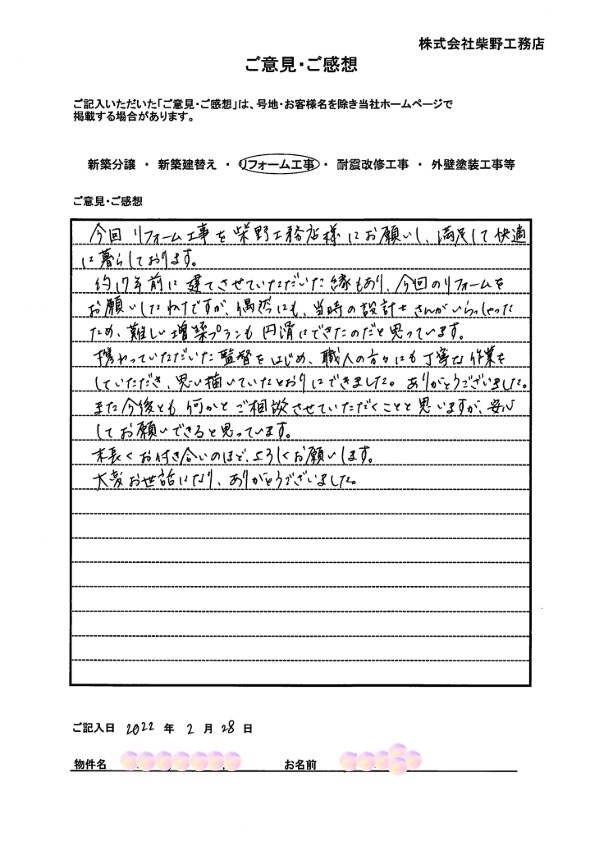 株式会社柴野工務店
ご意見・ご感想
ご記入いただいた「ご意見・ご感想」は、号地・お客様名を除き当社ホームページで
掲載する場合があります。
新築分譲 ・ 新築建替え ・ リフォーム工事 ・ 耐震改修工事 ・ 外壁塗装工事等
ご意見・ご感想
今回リフォーム工事を柴野工務店様にお願いし、満足して快適
に暮らしております。
約17年前に建てさせていただいた縁もあり、今回のリフォームを
お願いしたわけですが、偶然にも、当時の設計士さんがいらっしゃった
ため、難しい増築プランも円滑にできたのだと思っています。
携わっていただいた監督をはじめ、職人の方々にも丁寧な作業を
していただき、思い描いていたとおりにできました。ありがとうございました。
また今後とも何かとご相談させていただくことと思いますが、安心
してお願いできると思っています。
末長くお付き合いのほど、よろしくお願いします。
大変お世話になり、ありがとうございました。
ご記入日 2022 年 2 月 28 日
物件名 お名前